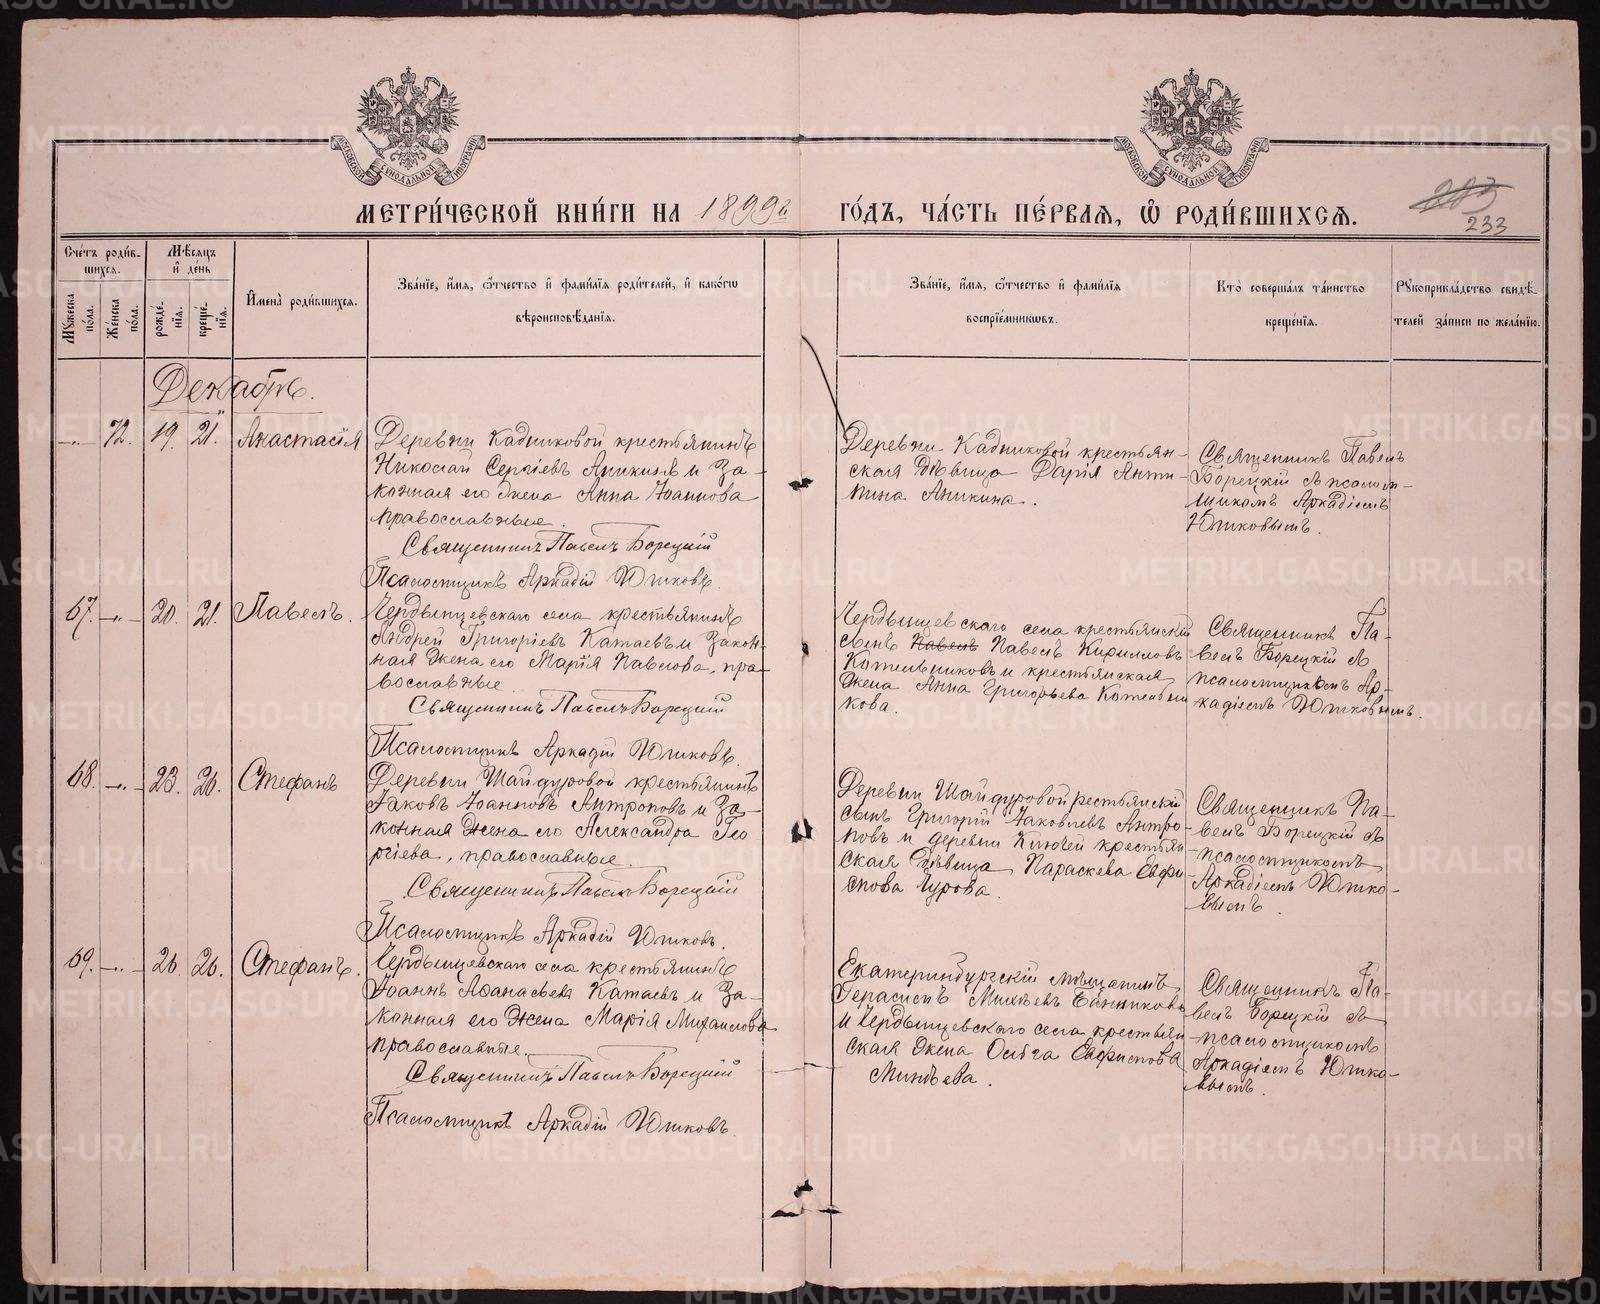 МЕТРИ́ЧЕСКОЙ КНИ́ГИ НА 1899й ГО́ДЪ, ЧА́СТЬ ПЕ́РВАЯ, Ѽ РОДИ́ВШИХСЯ.
233
Сче́тъ роди́в-
шихся.
Мꙋ́жеска по́ла.
Же́нска по́ла.
Мѣ́сяцъ
и҆ де́нь
рожде́-
нїя.
креще́-
нїя.
И҆мена̀ роди́вшихся.
Зва́нїе, и҆́мя, ѻ҆́тчество и҆ фами́лїя роди́телей, и҆ како́гѡ
вѣроисповѣ́данїя.
Зва́нїе, и҆́мя, ѻ҆́тчество и҆ фами́лїя
воспрїе́мникѡвъ.
Кто̀ соверша́лъ та́инство
креще́нїя.
Рꙋкоприкла́дство свидѣ́-
телей за́писи по жела́нїю.
Декабрь.
-„- 72. 19. 21. Анастасія
Деревни Кадниковой крестьянинъ
Николай Сергіевъ Аникинъ и За-
конная его жена Анна Іоаннова
православные.
Священникъ Павелъ Борецкій
Псаломщикъ Аркадій Юшковъ.
Деревни Кадниковой крестьян-
ская дѣвица Дарія Анти-
пина Аникина.
Священникъ Павелъ
Борецкій съ псалом-
щикомъ Аркадіемъ
Юшковымъ.
67. -„- 20. 21. Павелъ.
Чердынцевскаго села крестьянинъ
Андрей Григоріевъ Катаевъ и Закон-
ная Жена его Марія Павлова, пра-
вославные
Священникъ Павелъ Борецкій
Псаломщикъ Аркадій Юшковъ.
Чердынцевскаго села крестьянскій
сынъ Павелъ Павелъ Кирилловъ
Котельниковъ и крестьянская
Жена Анна Григорьева Котельни
кова.
Священникъ Па-
велъ Борецкій съ
псаломщикомъ Ар-
кадіемъ Юшковымъ.
68. -„- 23. 26. Стефанъ
Деревни Шайдуровой крестьянинъ
Іаковъ Іоанновъ Антроповъ и За-
конная Жена его Александра Гео
ргіева, православные.
Священникъ Павелъ Борецкій
Псаломщикъ Аркадій Юшковъ.
Деревни Шайдуровой рестьянскій
сынъ Григорій Іаковлевъ Антро-
повъ и деревни Ключей крестьян
ская Дѣвица Параскева Евфи-
мова Гурова.
Священникъ Па-
велъ Борецкій съ
псаломщикомъ
Аркадіемъ Юшко-
вымъ.
69. -„- 26. 26. Стефанъ.
Чердынцевскаго села крестьянинъ
Іоаннъ Аѳанасьевъ Катаевъ и За-
конная его Жена Марія Михаилова
православные.
Священникъ Павелъ Борецкій
Псаломщикъ Аркадій Юшковъ.
Екатеринбургскій мѣщанинъ
Герасимъ Михѣевъ Банниковъ
и Чердынцевскаго села крестьян
ская Жена Ольга Евфимова
Минѣева.
Священникъ Па-
велъ Борецкій съ
псаломщикомъ
Аркадіемъ Юшко-
вымъ.